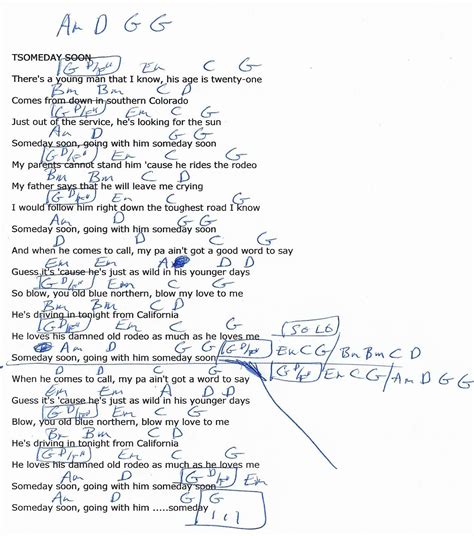 Am D G G
TSOMEDAY SOON
G D/F# Em C G
There's a young man that I know, his age is twenty-one
Bm Bm C D
Comes from down in southern Colorado
G D/F# Em C G
Just out of the service, he's looking for the sun
Am D G G
Someday soon, going with him someday soon
G D/F# Em C G
My parents cannot stand him 'cause he rides the rodeo
Bm Bm C D
My father says that he will leave me crying
G D/F# Em C G
I would follow him right down the toughest road I know
Am D G G
Someday soon, going with him someday soon
D D C G
And when he comes to call, my pa ain't got a good word to say
Em Em A D D
Guess it's 'cause he's just as wild in his younger days
G D/F# Em C G
So blow, you old blue northern, blow my love to me
Bm Bm C D
He's driving in tonight from California
G D/F# Em C G
He loves his damned old rodeo as much as he loves me SOLO
Am D G G G D/F# Em C G / Bm Bm C D
Someday soon, going with him someday soon
D D C G G D/F# Em C G / Am D G G
When he comes to call, my pa ain't got a word to say
Em Em A D D
Guess it's 'cause he's just as wild in his younger days
G D/F# Em C G
Blow, you old blue northern, blow my love to me
Bm Bm C D
He's driving in tonight from California
G D/F# Em C G
He loves his damned old rodeo as much as he loves me
Am D G D/F# Em
Someday soon, going with him someday soon
Am D G G
Someday soon, going with him .....someday